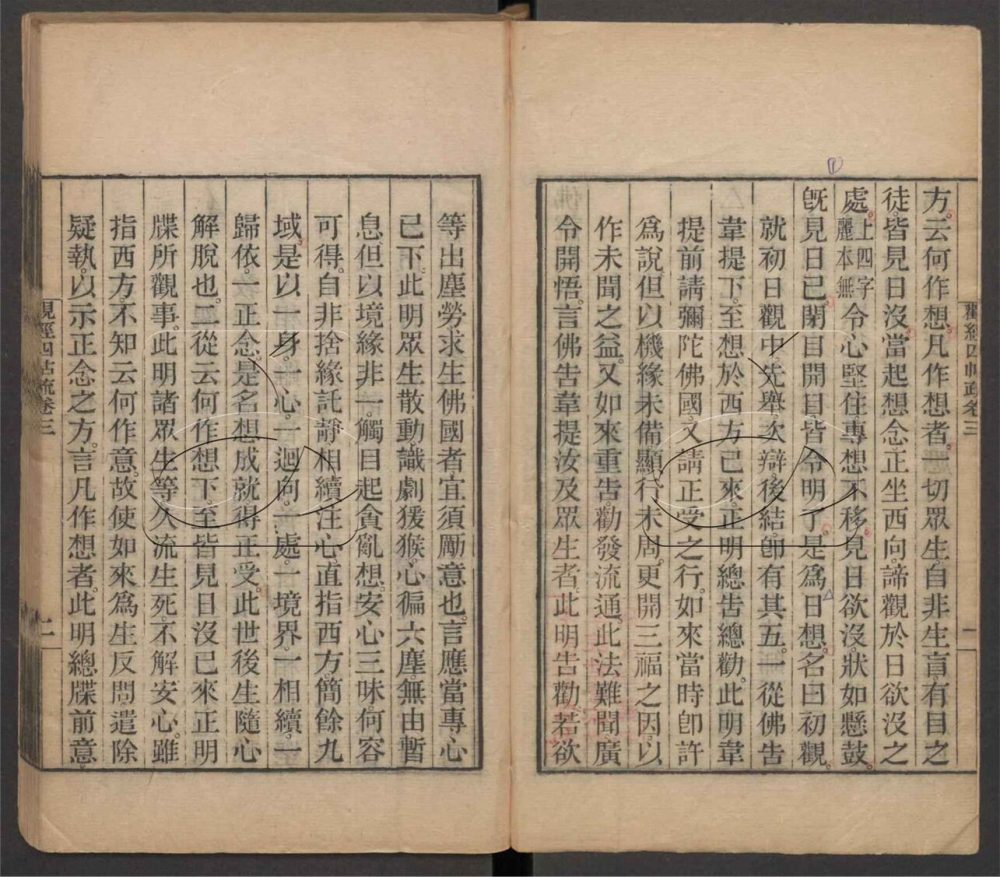 方。云何作想。凡作想者。一切眾生。自非生盲有目之
徒。皆見日沒。當起想念。正坐西向。諦觀於日欲沒之
處。上四字麗本無令心堅住專想不移。見日欲沒。狀如懸鼓。
既見日已。閉目開目皆令明了。是為日想。名曰初觀。
就初日觀中。先舉。次辯。後結。即有其五。一從佛告
韋提下。至想於西方已來。正明總告總勸。此明韋
提前請彌陀佛國。又請正受之行。如來當時即許
為說。但以機緣未備。顯行未周。更開三福之因。以
作未聞之益。又如來重告勸發流通。此法難聞廣
令開悟。言佛告韋提汝及眾生者。此明告勸。若欲
觀經四帖疏卷三
一
等出塵勞求生佛國者宜須勵意也。言應當專心
已下。此明眾生散動。識劇猨猴。心徧六塵。無由暫
息。但以境緣非一。觸目起貪亂想。安心三昧。何容
可得。自非捨緣託靜。相續注心。直指西方簡餘九
域。是以一身。一心。一迴向。一處。一境界。一相續。一
歸依。一正念。是名想成就得正受。此世後生隨心
解脫也。二從云何作想下至皆見日沒已來。正明
牒所觀事。此明諸眾生等久流生死。不解安心。雖
指西方。不知云何作意。故使如來為生反問。遣除
疑執。以示正念之方。言凡作想者。此明總牒前意。
觀經四帖疏卷三
二